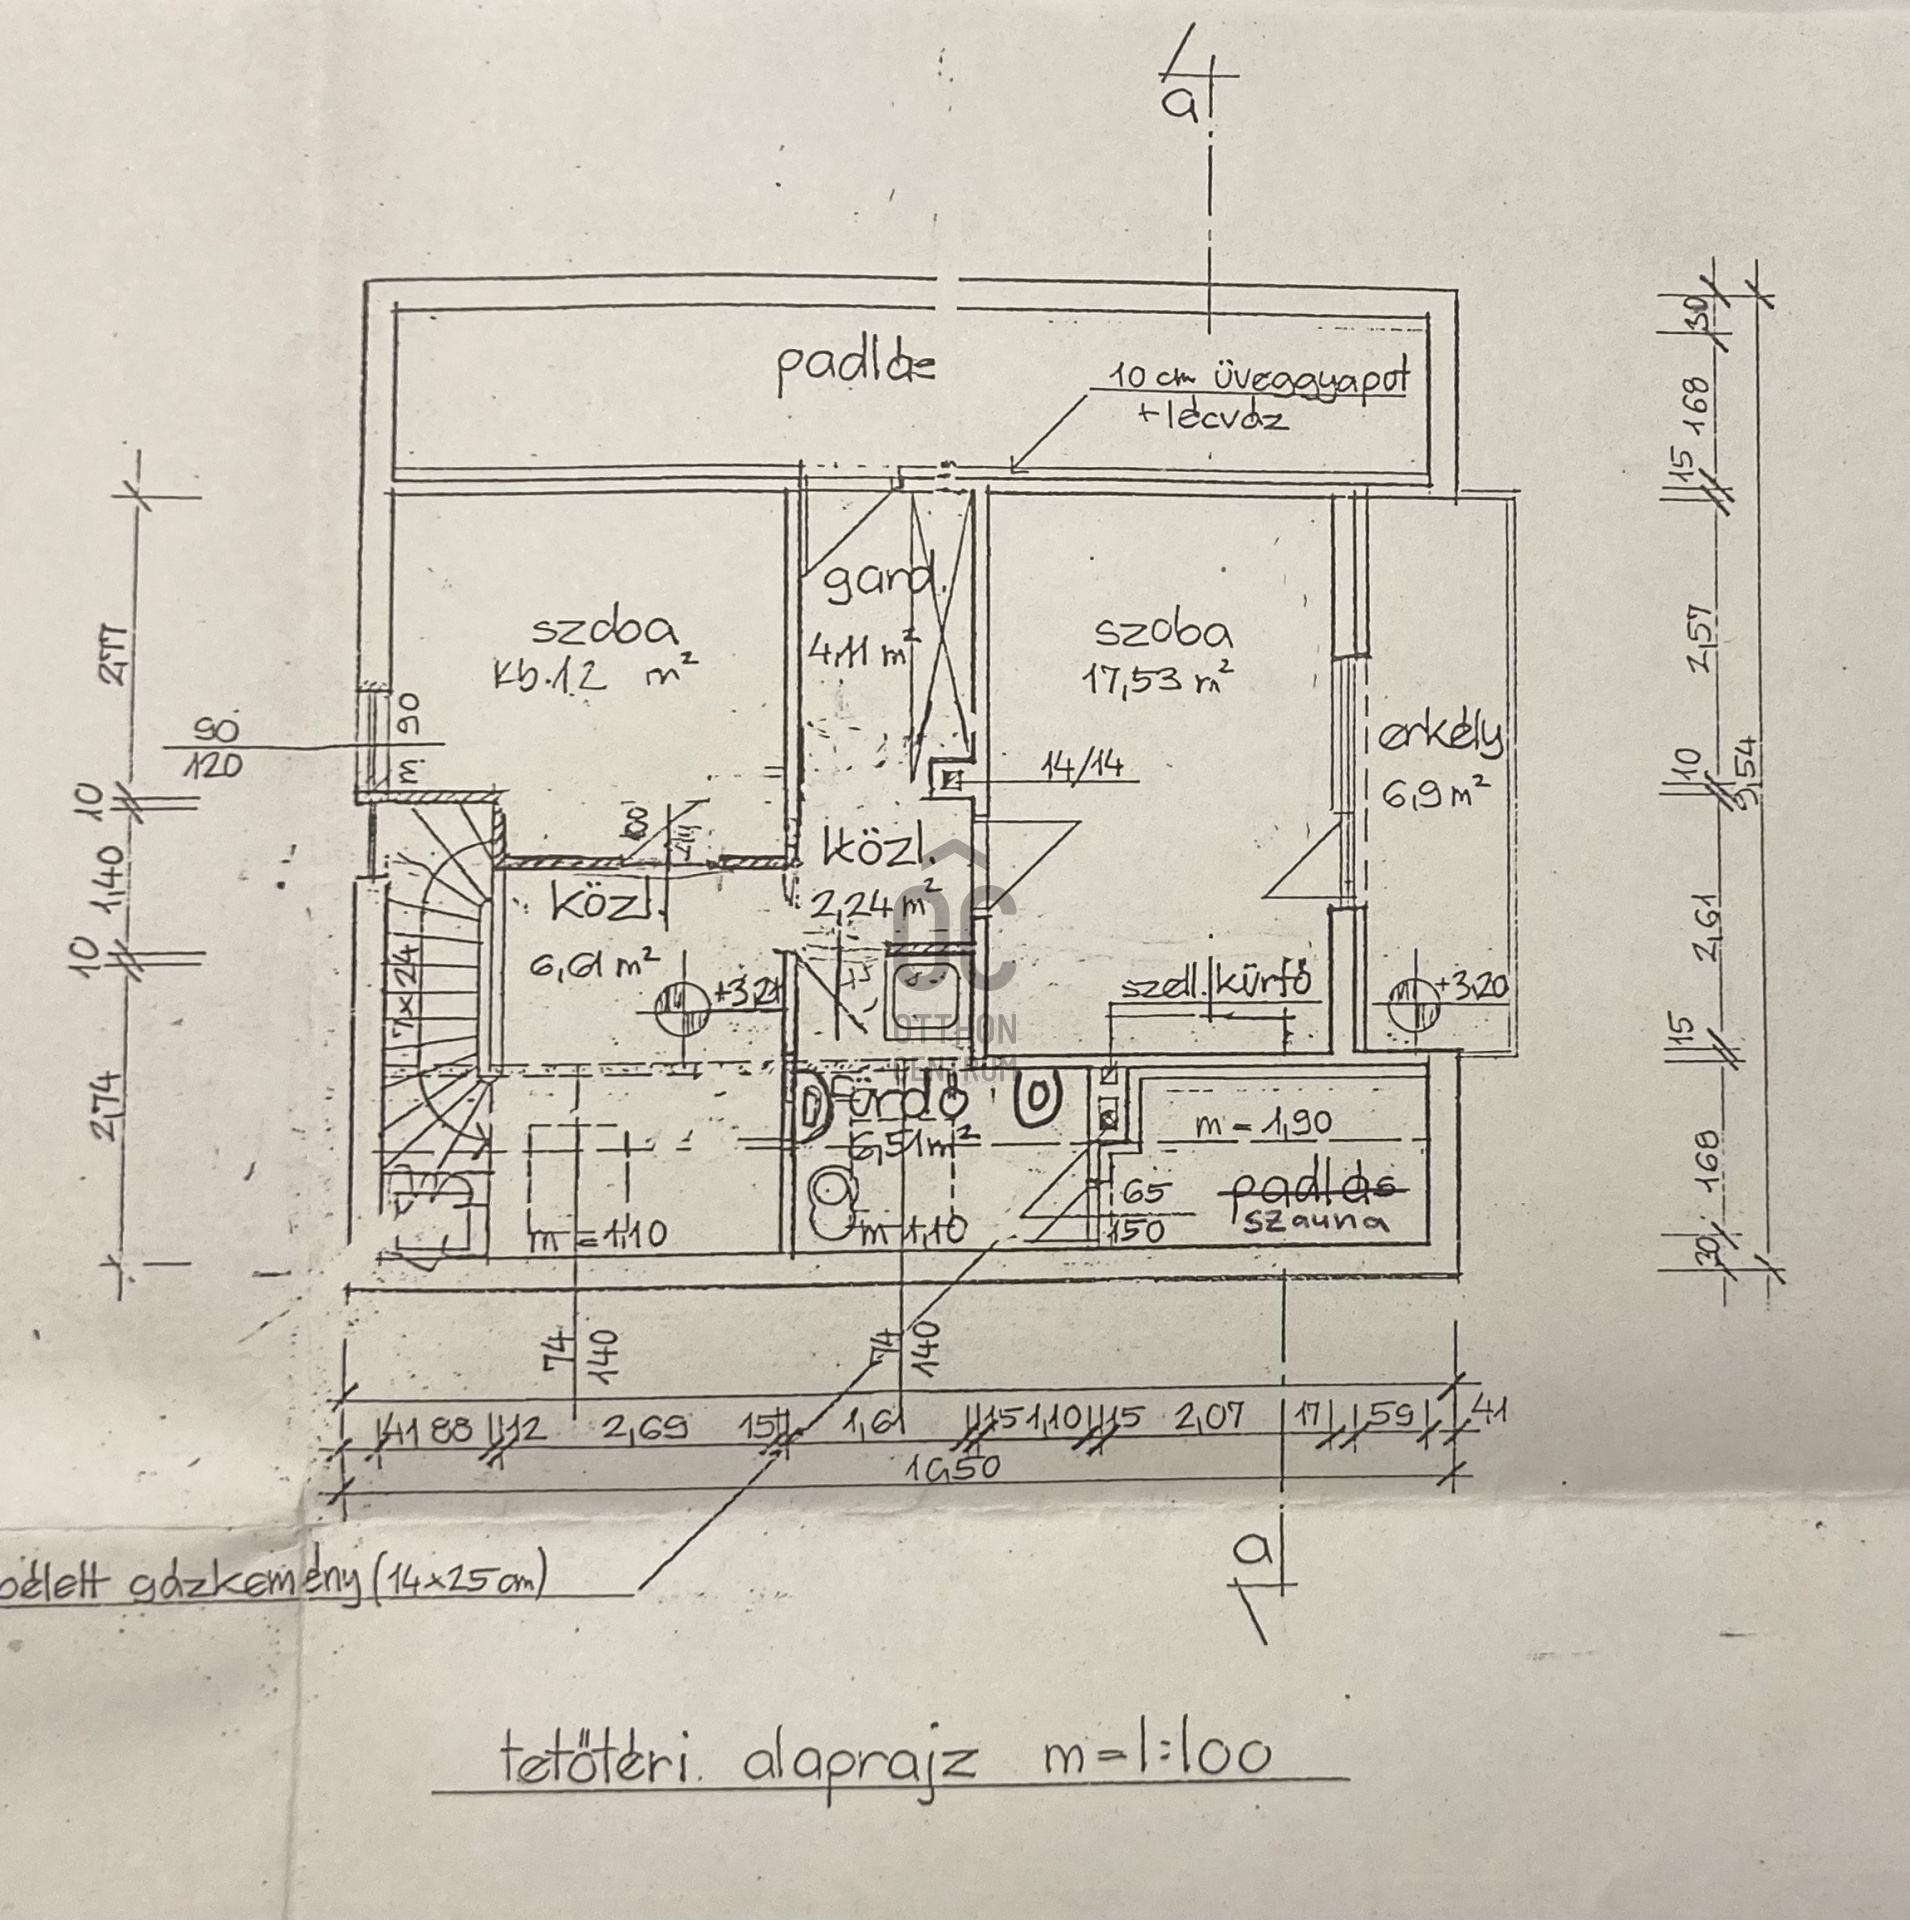 a
padlás
10 cm üveggyapot
+ lécváz
30
168
15
2,57
10
9,54
2,61
15
168
30
2,77
10
1,40
10
2,74
90
120
m. 90
szoba
kb. 12 m²
gard.
4,11 m²
szoba
17,53 m²
14/14
erkély
6,9 m²
közl.
2,24 m²
közl.
6,61 m²
+3,21
7x24
szell. kürtő
+3,20
ÓC
OTTHON
CENTRUM
fürdő
6,51 m²
m = 1,90
padlás
szauna
65
150
m = 1,10
m 1,10
74
140
74
140
41 88 12 2,69 15 1,61 15 1,10 15 2,07 17 59 41
10,50
a
gázkemény (14x25 cm)
tetőtéri alaprajz m = 1:100